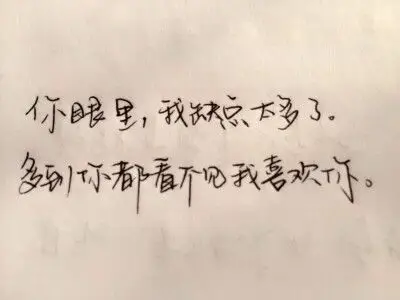 你眼里,我缺点太多了。
多到你都看不见我喜欢你。